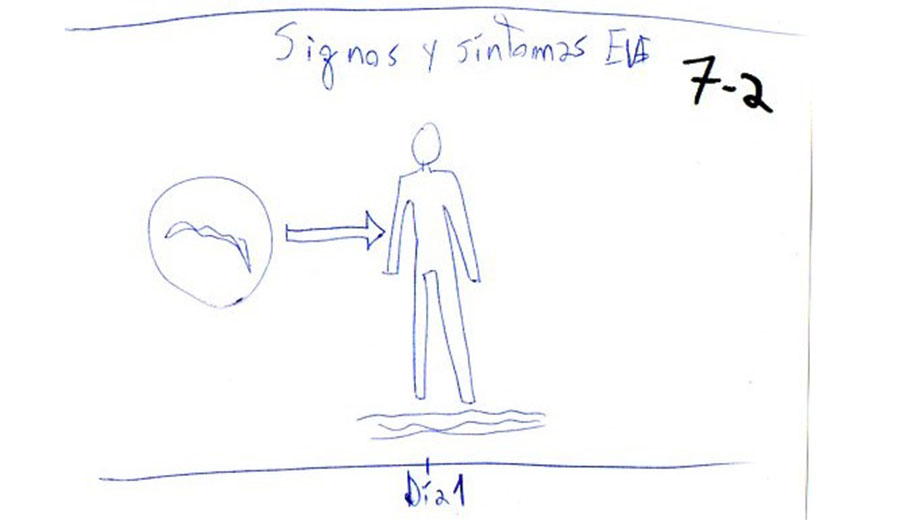 Signos y síntomas EVE
7-2
Día 1